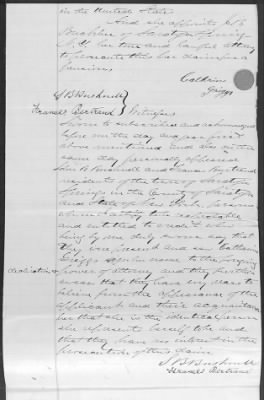 in the United States
And she appoints S B
Bushnell of Saratoga Springs
N.Y. her true and lawful attorney
to prosecute this her claim for a
pension.
Catherine
Griggs
S B Bushnell
Frances Bertrand } Witnesses
Sworn to subscribed and acknowledged
before me the day and year first
above mentioned and also on the
same day personally appeared
S. B. Bushnell and Frances Bertrand
residents of the town of Saratoga
Springs in the County of Saratoga
and State of New York, persons
whom I certify to be respectable
and entitled to credit and that
being by me duly sworn say that
they were present and saw Catherine
Griggs sign her name to the foregoing
declaration & power of attorney and they further
swear that they have every reason to
believe from the appearance of the
applicant and their acquaintance
with her that she is the identical person
she represents herself to be and
that they have no interest in the
prosecution of this claim.
S B Bushnell
Frances Bertrand